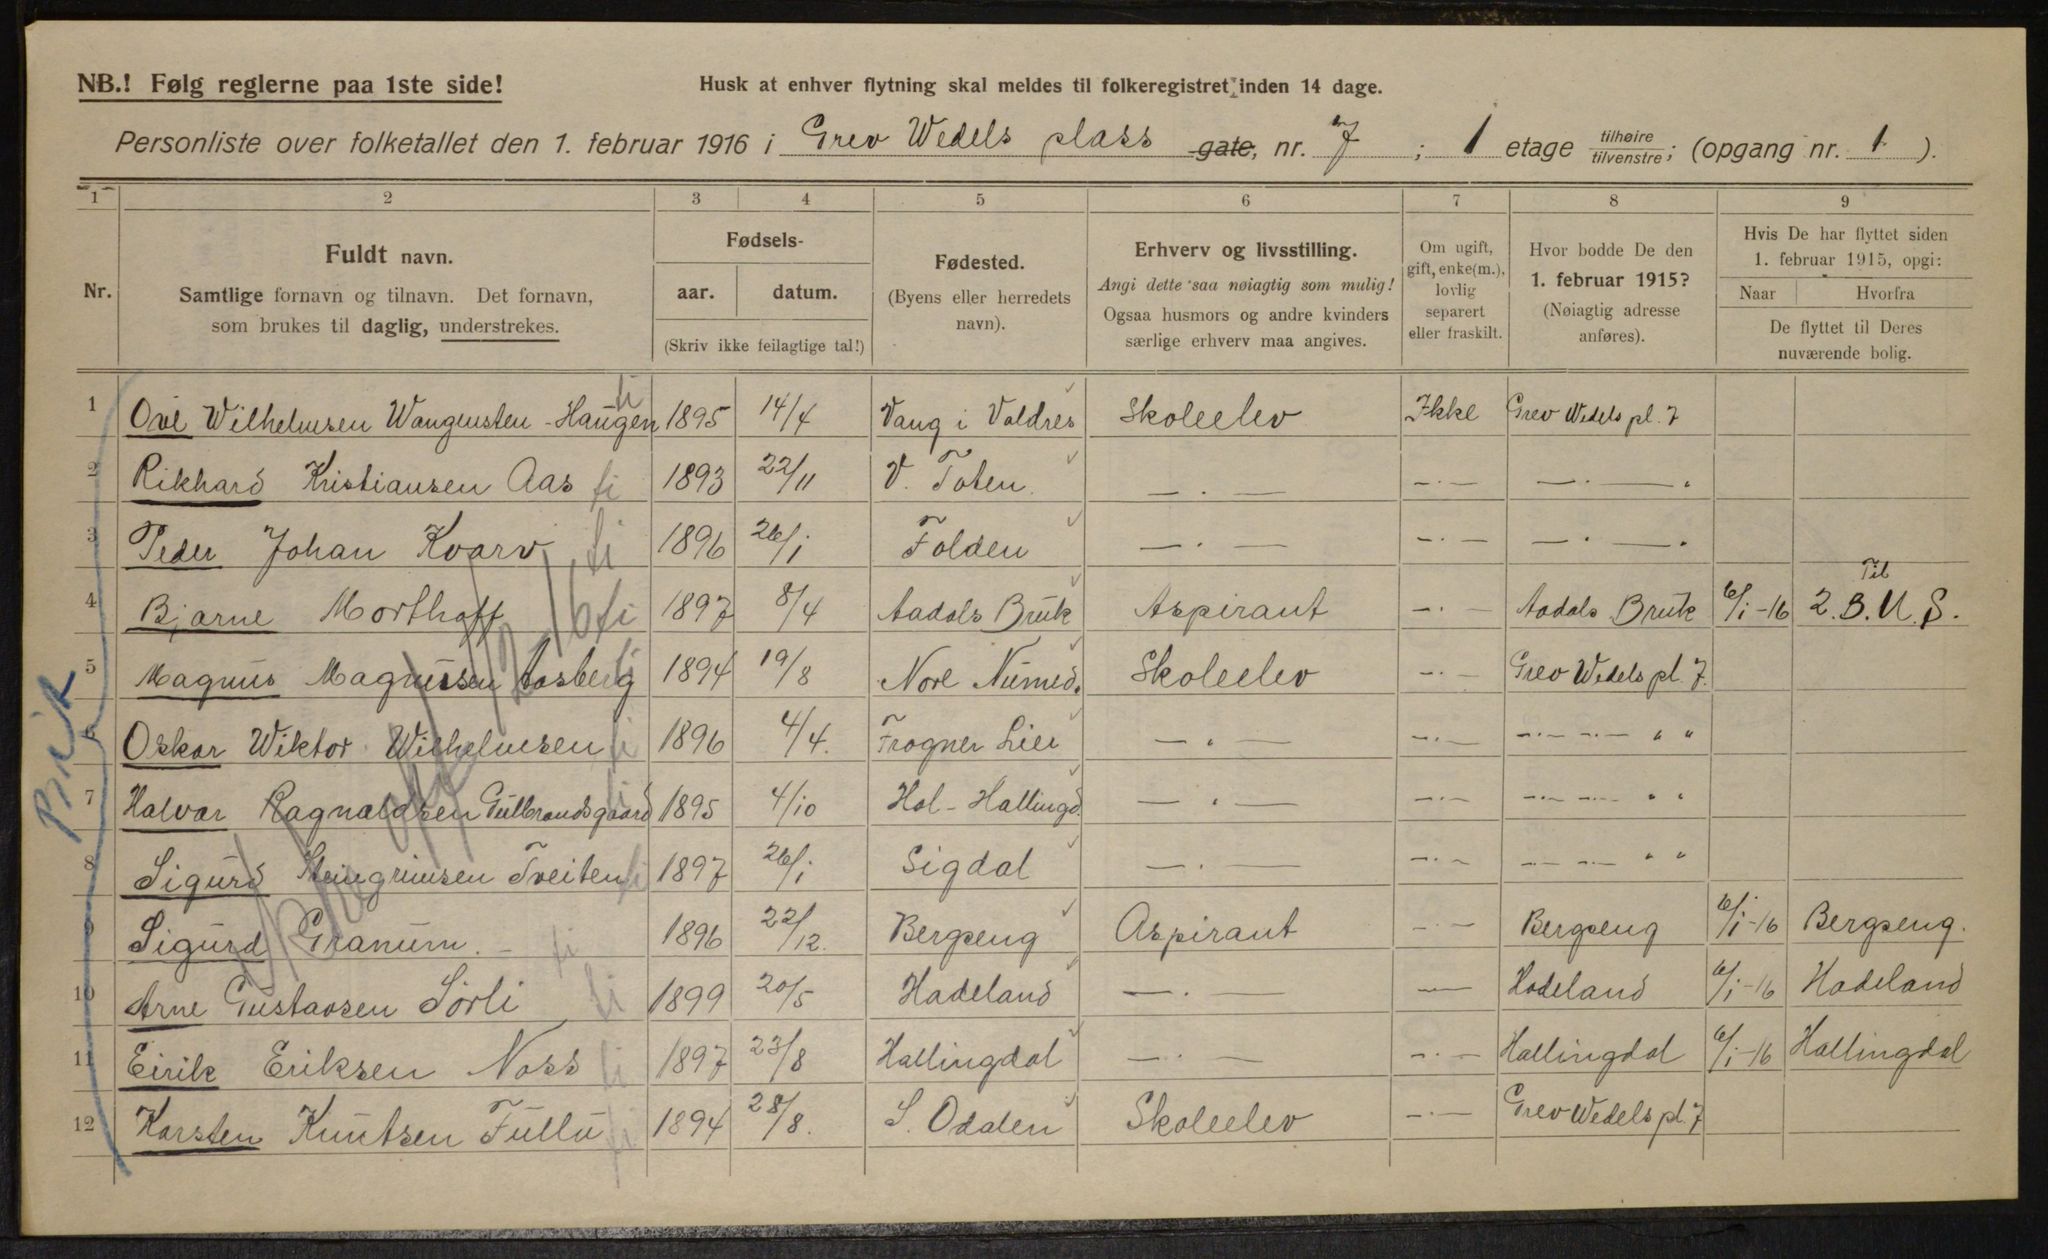 NB.! Følg reglerne paa 1ste side!
Husk at enhver flytning skal meldes til folkeregistret inden 14 dage.
Personliste over folketallet den 1. februar 1916 i Grev Wedels plass gate, nr. 7 ; 1 etage tilhøire tilvenstre; (opgang nr. 1 ).
1 2 3 4 5 6 7 8 9
Nr.
Fuldt navn.
Samtlige fornavn og tilnavn. Det fornavn,
som brukes til daglig, understrekes.
Fødsels-
aar. datum.
(Skriv ikke feilagtige tal!)
Fødested.
(Byens eller herredets
navn).
Erhverv og livsstilling.
Angi dette saa nøiagtig som mulig!
Ogsaa husmors og andre kvinders
særlige erhverv maa angives.
Om ugift,
gift, enke(m.),
lovlig
separert
eller fraskilt.
Hvor bodde De den
1. februar 1915?
(Nøiagtig adresse
anføres).
Hvis De har flyttet siden
1. februar 1915, opgi:
Naar Hvorfra
De flyttet til Deres
nuværende bolig.
1 Ove Wilhelmsen Wangensten-Haugen 1895 14/4 Vang i Valdres Skoleelev Ikke Grev Wedels pl. 7
2 Rikhard Kristiansen Aas 1893 22/11 V. Toten. — . — — . — — . — "
3 Peder Johan Kvarv 1896 26/1 Folden — . — — . — — . — "
4 Bjarne Morthoff 1897 8/4 Aadals Bruk Aspirant — . — Aadals Bruk 6/1-16 Til 2. B. U. S.
5 Magnus Magnussen Aasberg 1894 19/8 Nore Numed. Skoleelev — . — Grev Wedels pl. 7.
6 Oskar Wiktor Wilhelmsen 1896 4/4. Frogner Lier — " — — . — — . — — . — " "
7 Halvar Ragnaldsen Gulbrandsgaard 1895 4/10 Hol - Hallingd. — " — — . — — . — — . — " "
8 Sigurd Steingrimsen Tveiten 1897 26/1 Sigdal — . — — . — — . — — . — " "
9 Sigurd Granum. 1896 22/12. Bergseng Aspirant — . — Bergseng 6/1-16 Bergseng.
10 Arne Gustavsen Sörli 1899 20/5 Hadeland — . — — Hadeland 6/1-16 Hadeland
11 Eirik Eriksen Noss 1897 23/8 Hallingdal — . — — . — Hallingdal 6/1-16 Hallingdal
12 Karsten Knutsen Fullu 1894 28/8. S. Odalen Skoleelev — . — Grev Wedels pl. 7